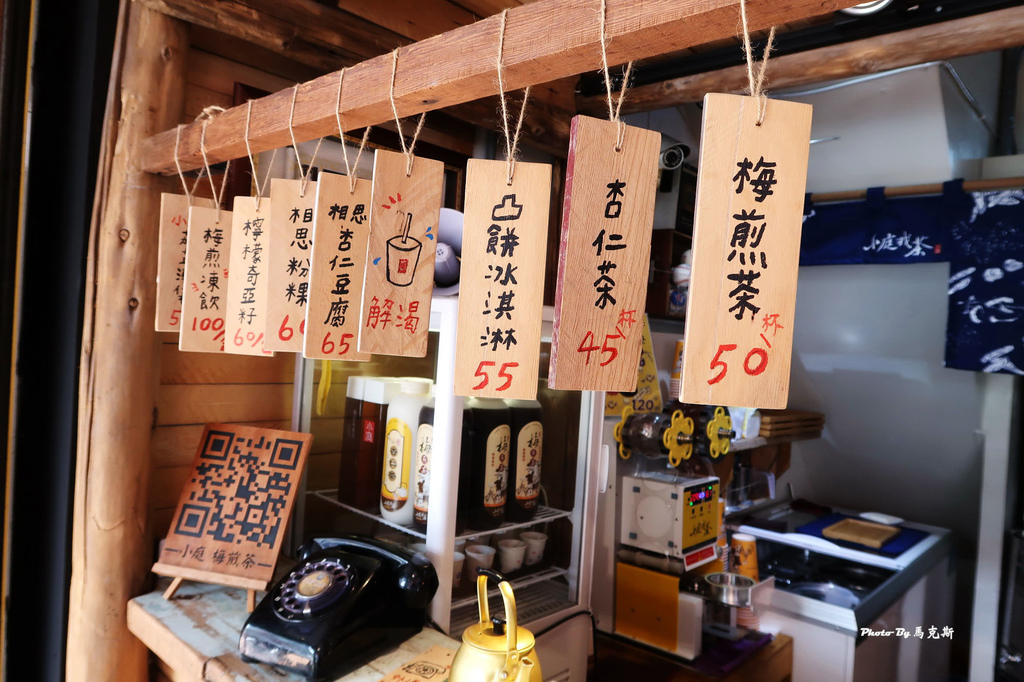 梅煎凍飲
100
檸檬奇亞籽
60
相思粉粿
60
相思杏仁豆腐
65
解渴
凸餅冰淇淋
55
杏仁茶
45/杯
梅煎茶
50/杯
小庭 梅煎茶
120
Photo By 馬克斯